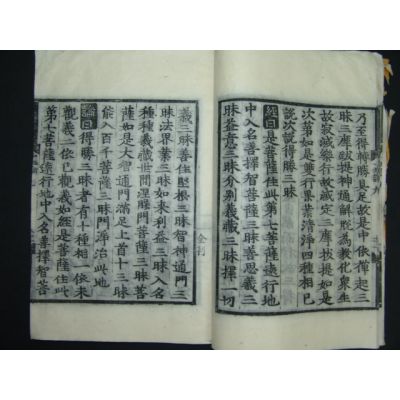 乃至得轉勝具足故是中依禪起三
昧三摩跋提神通解脫為教化衆生
故寂滅樂行故寂定三摩拔提如是
次第如是雙行果業清淨四種相已
說次說得勝三昧
經曰是菩薩住此第七菩薩遠行地
中入名善擇智菩薩三昧善思義三
昧益意三昧分別義藏三昧擇一切
義三昧善住堅根三昧智神通門三
昧法界業三昧如來利益三昧入名
種種義藏世間涅槃門菩薩三昧菩
薩如是大智通門滿足上首十三昧
能入百千菩薩三昧門淨治此地
論曰得勝三昧者有十種相一依未
觀義二依已觀義如經是菩薩住此
第七菩薩遠行地中入名善擇智菩
全刊